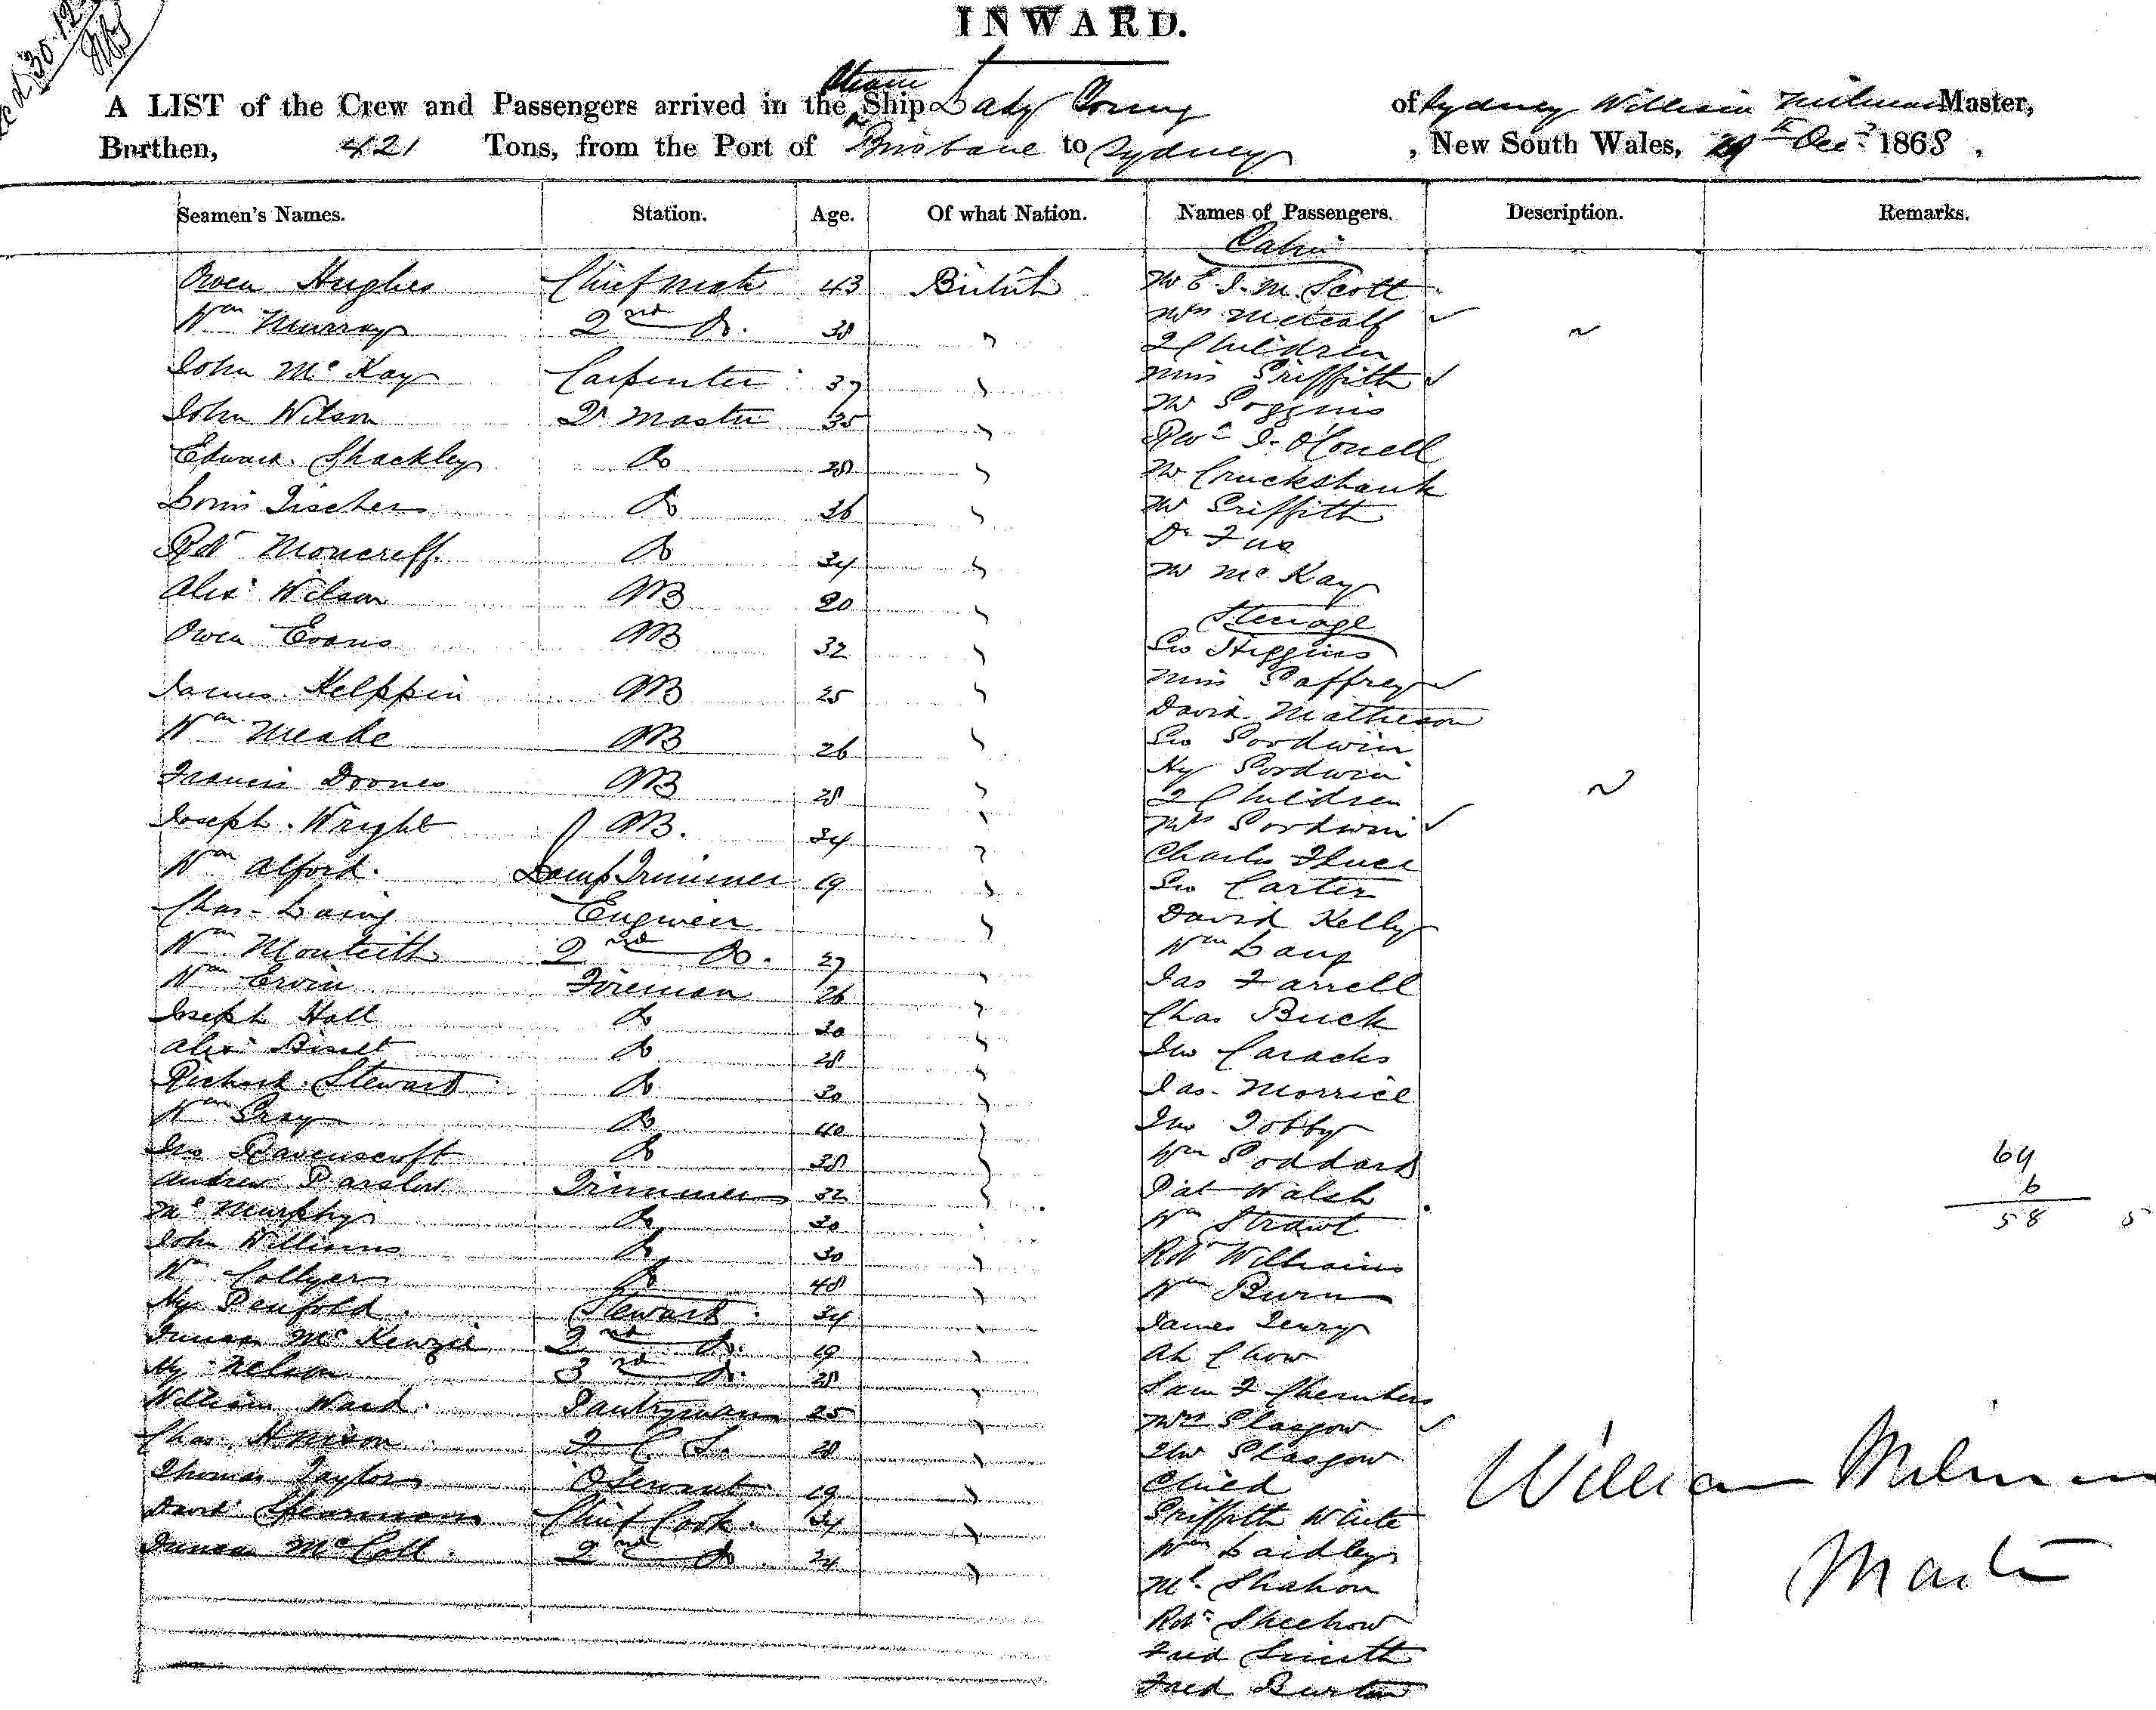 INWARD.
A LIST of the Crew and Passengers arrived in the Steam Ship Lady Young of Sydney William Milman Master,
Burthen, 421 Tons, from the Port of Brisbane to Sydney, New South Wales, 29th Decr 1868,
Seamen's Names. Station. Age. Of what Nation. Names of Passengers. Description. Remarks.
Cabin
Owen Hughes Chief Mate 43 British Mr E. J. M. Scott
Wm Murray 2nd Do. 38 " Mrs Metcalf
2 Children
John McKay Carpenter 37 " Miss Griffith
John Wilson Qr Master 35 " Mr Goggins
Edward Shackley Do 28 " Revd J. O'Conell
Mr Cruckshank
Louis Tischer Do 36 " Mr Griffith
Robt Moncreff Do 34 " Dr
Mr McKay
Alexr Wilson AB 20 "
Steerage
Owen Evans AB 32 " Geo Higgins
James AB 25 " Miss Gaffrey
David Matheson
Wm Meake AB 26 " Geo Goodwin
Hy Goodwin
Francis AB 28 " 2 Children
Joseph Wright AB. 34 " Mrs Goodwin
Charles
Wm Alford. Lamp Trimmer 19 " Geo Carter
Chas Laing Engineer " David Kelly
Wm Monteith 2nd Do. 27 " Wm Lang
Wm Ervin Fireman 26 " Jas Farrell
Joseph Hall Do 30 " Chas Buck
Alexr Do 28 " Jno
Richard Stewart Do 30 " Jas. Morrice
Wm Gray Do 40 " Jno Tobby
Jno Ravenscroft Do 38 " Wm Goddard 64
Andrew Parslow Trimmer 32 " Pat Walsh 6
Ml Murphy Do 30 " Wm 58 5
John Williams Do 30 " Robt Williams
Wm Collyer Do 48 " Wm Burn
Hy Penfold Steward 34 " James
Duncan McKenzie 2nd Do. 19 " Ah Chow
Hy Nelson 3rd Do. 28 " Sam
William Ward Pantryman 25 " Mrs Glasgow
Chas 28 " Jno Glasgow
Thomas Taylor Servant 19 " Child
David Spearman Chief Cook 34 " Griffith White
Duncan McColl 2nd Do 24 " Wm Laidley
Ml
Robt
Fred Smith
Fred Burton
William Milman
Master